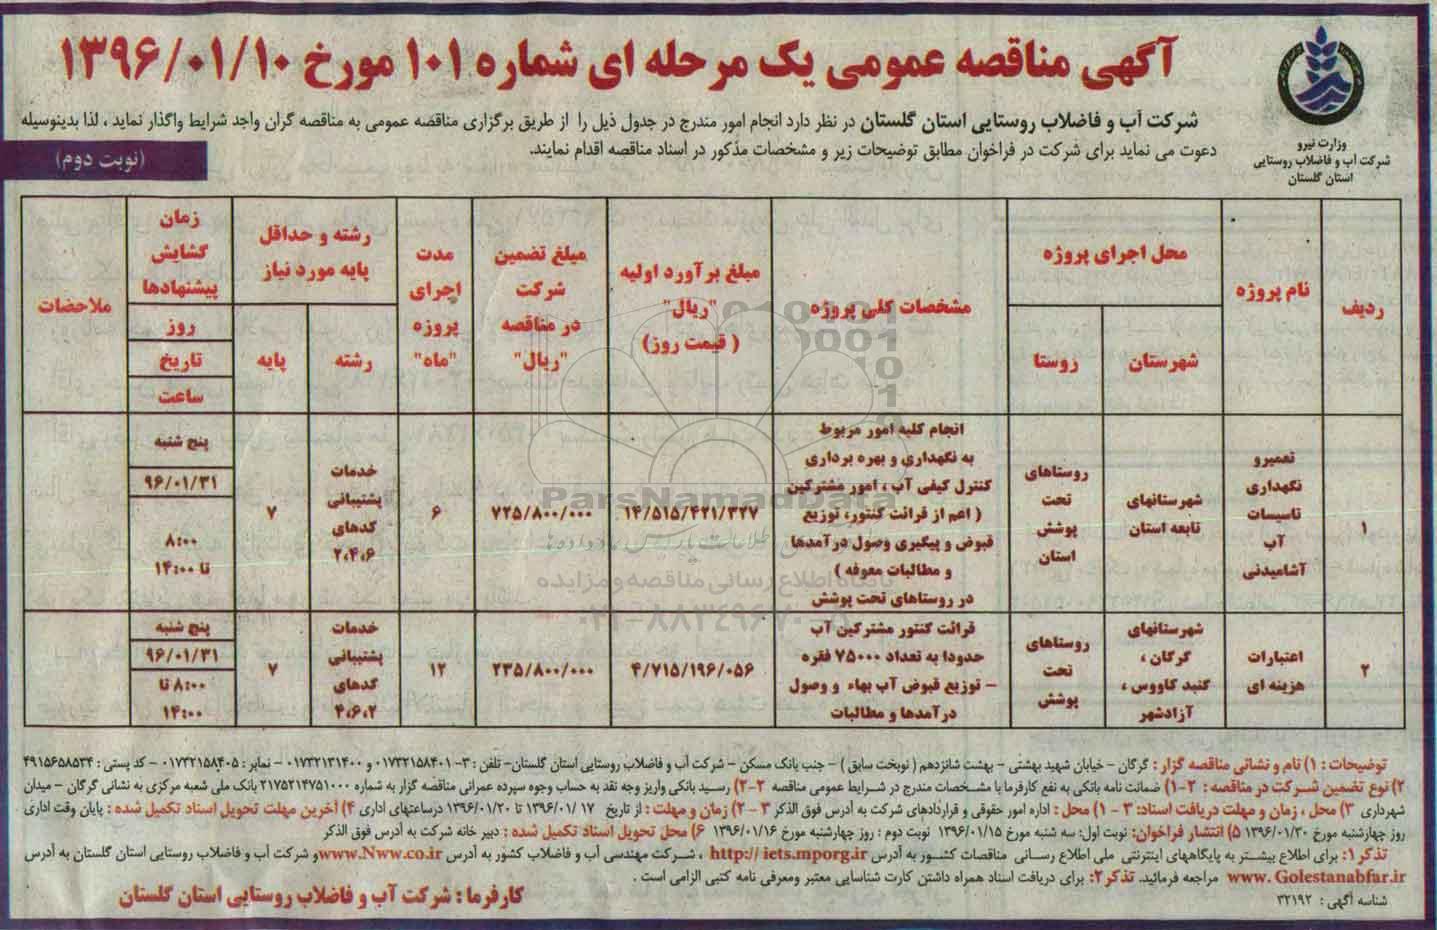 آگهی مناقصه عمومی یک مرحله ای شماره ۱۰۱ مورخ ۱۳۹۶/۰۱/۱۰
وزارت نیرو
شرکت آب و فاضلاب روستایی
استان گلستان
شرکت آب و فاضلاب روستایی استان گلستان در نظر دارد انجام امور مندرج در جدول ذیل را از طریق برگزاری مناقصه عمومی به مناقصه گران واجد شرایط واگذار نماید ، لذا بدینوسیله
دعوت می نماید برای شرکت در فراخوان مطابق توضیحات زیر و مشخصات مذکور در اسناد مناقصه اقدام نمایند.
(نوبت دوم)
ردیف
نام پروژه
محل اجرای پروژه
شهرستان
روستا
مشخصات کلی پروژه
مبلغ برآورد اولیه
"ریال"
( قیمت روز)
مبلغ تضمین
شرکت
در مناقصه
"ریال"
مدت
اجرای
پروژه
"ماه"
رشته و حداقل
پایه مورد نیاز
رشته
پایه
زمان
گشایش
پیشنهادها
روز
تاریخ
ساعت
ملاحضات
۱
تعمیرو
نگهداری
تاسیسات
آب
آشامیدنی
شهرستانهای
تابعه استان
روستاهای
تحت
پوشش
استان
انجام کلیه امور مربوط
به نگهداری و بهره برداری
کنترل کیفی آب ، امور مشترکین
( اعم از قرائت کنتور، توزیع
قبوض و پیگیری وصول درآمدها
و مطالبات معوقه )
در روستاهای تحت پوشش
۱۴/۵۱۵/۴۲۱/۳۲۷
۷۲۵/۸۰۰/۰۰۰
۶
خدمات
پشتیبانی
کدهای
۲،۴،۶
۷
پنج شنبه
۹۶/۰۱/۳۱
۸:۰۰
تا ۱۴:۰۰
۲
اعتبارات
هزینه ای
شهرستانهای
گرگان ،
گنبد کاووس ،
آزادشهر
روستاهای
تحت
پوشش
قرائت کنتور مشترکین آب
حدودا به تعداد ۷۵۰۰۰ فقره
– توزیع قبوض آب بهاء و وصول
درآمدها و مطالبات
۴/۷۱۵/۱۹۶/۰۵۶
۲۳۵/۸۰۰/۰۰۰
۱۲
خدمات
پشتیبانی
کدهای
۴،۶،۲
۷
پنج شنبه
۹۶/۰۱/۳۱
۸:۰۰ تا
۱۴:۰۰
ParsNamadData
پایگاه اطلاع رسانی مناقصه و مزایده
۰۲۱-۸۸۳۴۹۶۷۰-۵
توضیحات : ۱) نام و نشانی مناقصه گزار : گرگان – خیابان شهید بهشتی – بهشت شانزدهم ( نوبخت سابق ) – جنب بانک مسکن – شرکت آب و فاضلاب روستایی استان گلستان- تلفن : ۳-۰۱۷۳۲۱۵۸۴۰۱ و ۰۱۷۳۲۱۳۱۴۰۰ – نمابر : ۰۱۷۳۲۱۵۸۴۰۵ – کد پستی : ۴۹۱۵۶۵۸۵۳۴
۲) نوع تضمین شرکت در مناقصه : ۲-۱) ضمانت نامه بانکی به نفع کارفرما با مشخصات مندرج در شرایط عمومی مناقصه ۲-۲) رسید بانکی واریز وجه نقد به حساب وجوه سپرده عمرانی مناقصه گزار به شماره ۲۱۷۵۲۱۴۷۵۱۰۰۰ بانک ملی شعبه مرکزی به نشانی گرگان – میدان
شهرداری ۳) محل ، زمان و مهلت دریافت اسناد: ۳ – ۱) محل : اداره امور حقوقی و قراردادهای شرکت به آدرس فوق الذکر ۳ – ۲) زمان و مهلت : از تاریخ ۱۷ /۱۳۹۶/۰۱ تا ۱۳۹۶/۰۱/۲۰ درساعتهای اداری ۴) آخرین مهلت تحویل اسناد تکمیل شده : پایان وقت اداری
روز چهارشنبه مورخ ۱۳۹۶/۰۱/۳۰ ۵) انتشار فراخوان: نوبت اول: سه شنبه مورخ ۱۳۹۶/۰۱/۱۵ نوبت دوم : روز چهارشنبه مورخ ۱۳۹۶/۰۱/۱۶ ۶) محل تحویل اسناد تکمیل شده : دبیر خانه شرکت به آدرس فوق الذکر
تذکر ۱: برای اطلاع بیشتر به پایگاههای اینترنتی ملی اطلاع رسانی مناقصات کشور به آدرس http:// iets.mporg.ir ، شرکت مهندسی آب و فاضلاب کشور به آدرس www.Nww.co.ir و شرکت آب و فاضلاب روستایی استان گلستان به آدرس
www. Golestanabfar.ir مراجعه فرمائید. تذکر۲: برای دریافت اسناد همراه داشتن کارت شناسایی معتبر ومعرفی نامه کتبی الزامی است .
شناسه آگهی : ۳۲۱۹۲
کارفرما : شرکت آب و فاضلاب روستایی استان گلستان